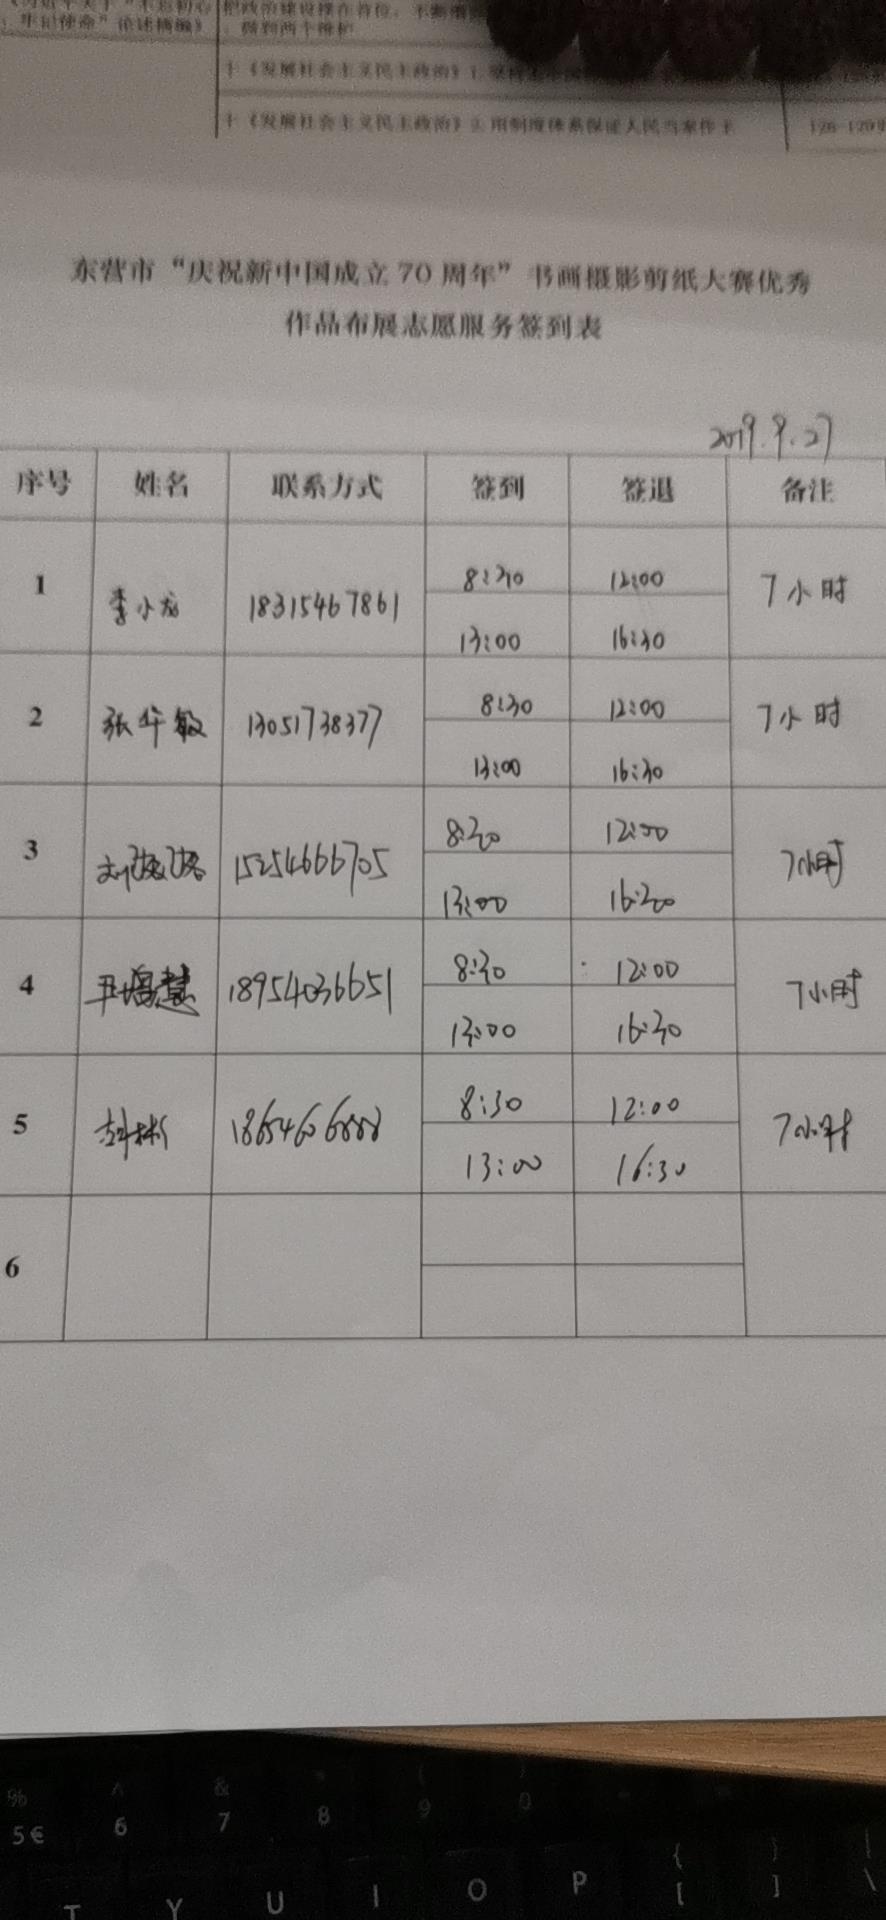 十《发展社会主义民主政治》2.用制度体系保证人民当家作主
东营市“庆祝新中国成立70周年”书画摄影剪纸大赛优秀
作品布展志愿服务签到表
2019.9.27
序号 姓名 联系方式 签到 签退 备注
1 李小龙 18315467861 8:30 12:00 7小时
13:00 16:30
2 张华敏 13051738377 8:30 12:00 7小时
13:00 16:30
3 15254666705 8:30 12:00 7小时
13:00 16:30
4 18954036651 8:30 12:00 7小时
13:00 16:30
5 8:30 12:00 7小时
13:00 16:30
6
% ^ & * ( )
5 € 6 7 8 9 0
{ } |
T Y U I O P [ ] \